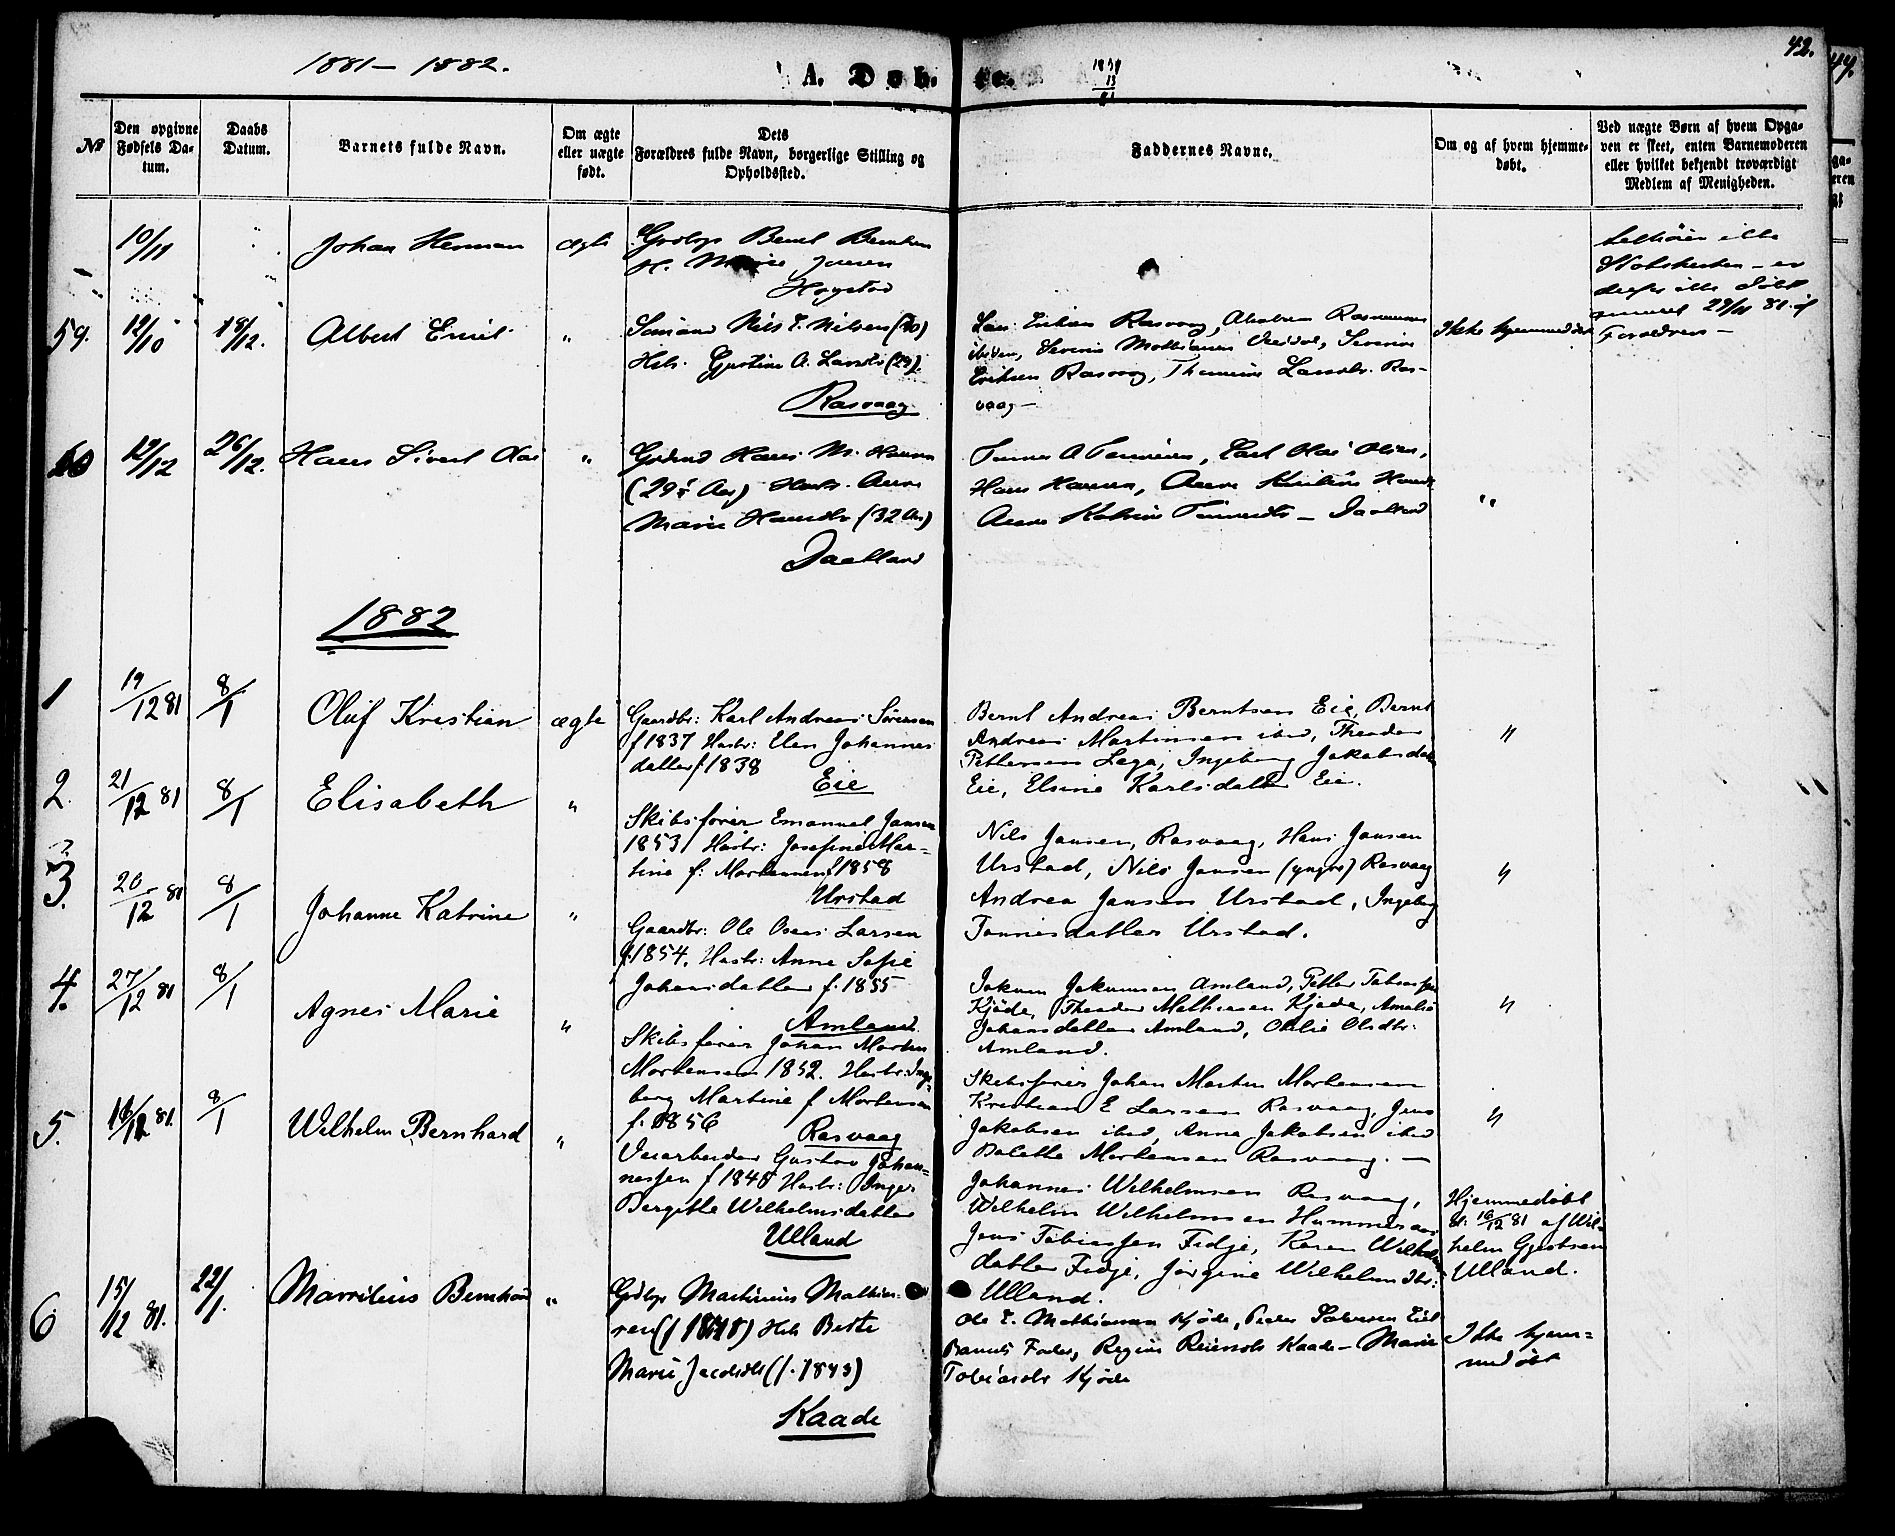 1881 – 1882.
A. Døb- te.
42.
No
Den opgivne Fødsels Da- tum.
Daabs Datum.
Barnets fulde Navn.
Om ægte eller uægte født.
Dets Forældres fulde Navn, borgerlige Stilling og Opholdssted.
Faddernes Navne.
Om og af hvem hjemme- døbt.
Ved uægte Børn af hvem Opga- ven er skeet, enten Barnemoderen eller hvilket bekjendt troværdigt Medlem af Menigheden.
10/11
Johan Herman
ægte
H. Marie Jansen
Høgstad
Statskirken – er
døbt
29/11 81 af
Forældren –
59.
12/10
18/12.
Albert Emil
"
Sømand Nils T. Nilsen (30)
Hstr. Gjertine A. Larsdtr (29).
Rasvaag
Erikson Rasvaag,
ibiden, Severin Mathiasen Severine
Eriksen Rasvaag, Larsdtr. Ras-
vaag –
Ikke hjemmedøbt
60
12/12
26/12.
Hans Sivert Olai
"
Grdmd Hans M. Hansen
(29 5/ Aar) Hustr. Anne
Marie Hansdtr (32 Aar)
Jaatland
Tønnes A Tønnesen, Carl Olai Olsen,
Hans Hansen, Anne Kristine Hansdtr
Anne Katrine Tønnesdtr – Jaatland
"
1882
1
19/12 81
8/1
Oluf Kristian
ægte
Gaardbr: Karl Andreas Sørensen
f 1837 Hustr: Elen Johannes
datter f 1838
Eie
Bernt Andreas Berntsen Eie, Bernt
Andreas Martinsen ibid, Theodor
Pettersen Lega, Ingeborg Jakobsdatter
Eie, Elsine Karlsdatter Eie.
"
2.
21/12 81
8/1
Elisabeth
"
Skibsfører Emanuel Jansen
1853 Hustr: Josefine Mar-
tine f: Mortensen f 1858
Urstad
Nils Jansen, Rasvaag, Hans Jansen
Urstad, Nils Jansen (yngre) Rasvaag
Andrea Jansen Urstad, Ingeborg
Tønnesdatter Urstad.
"
3.
20/12 81
8/1
Johanne Katrine
"
Gaardbr: Ole Oseas Larsen
f. 1854. Hustr: Anne Sofie
Johansdatter f. 1855
Amland.
Jokum Jokumsen Amland, Petter Tobiassen
Kjöde, Theodor Mathiasen Kjøde, Amalie
Johansdatter Amland, Otilie Olsdtr:
Amland.
"
4.
27/12 81
8/1
Agnes Marie
"
Skibsfører Johan Morten
Mortensen 1852. Hustr: Inge-
borg Martine f Mortensen
f. 1856
Rasvaag
Skibsfører Johan Morten Mortensen
Kristian E Larsen Rasvaag, Jens
Jakobsen ibid, Anna Jakobsen ibid
Bolette Mortensen Rasvaag. –
"
5.
16/12 81.
8/1
Wilhelm Bernhard
"
Veiarbeider Gustav Johan-
nessen f 1848 Hustr: Inger
Bergitte Wilhelmsdatter
Ulland
Johannes Wilhelmsen Rasvaag,
Wilhelm Wilhelmsen Hummeraas
Jens Tobiassen Fidje, Karen Wilhelms-
datter Fidje, Jørgine Wilhelmsdtr:
Ulland.
Hjemmedøbt
d: 16/12 81 af Wil-
helm Gjertsen
Ulland.
6
15/12 81.
22/1.
Marsilius Bernhard
"
Grdbgr Martinius Mathias-
sen (f 1848) Hstr Berte
Marie Jacobsdtr (f. 1843)
Kaade
Ole T. Mathiasen Kjøde, Peder Salvesen Eie
Barnets Fader, Regine Reiersdtr Kaade – Marie
Tobiasdtr Kjøde
Ikke hjem-
medøbt